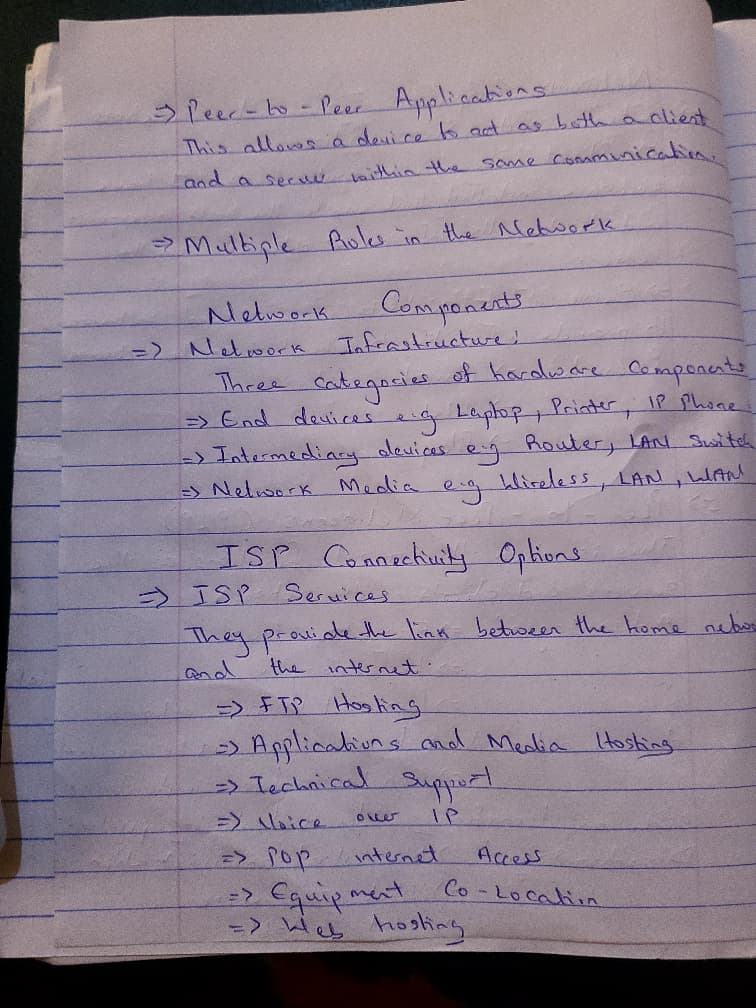 ⇒ Peer-to-Peer Applications
This allows a device to act as both a client
and a server within the same communication.
⇒ Multiple Roles in the Network
Network Components
⇒ Network Infrastructure:
Three categories of hardware Components
⇒ End devices e.g Laptop, Printer, IP Phone
⇒ Intermediary devices e.g Router, LAN Switch
⇒ Network Media e.g Wireless, LAN, WAN
ISP Connectivity Options
⇒ ISP Services
They provide the link between the home
and the internet.
⇒ FTP Hosting
⇒ Applications and Media Hosting
⇒ Technical Support
⇒ Voice over IP
⇒ POP internet Access
⇒ Equipment Co-Location
⇒ Web hosting